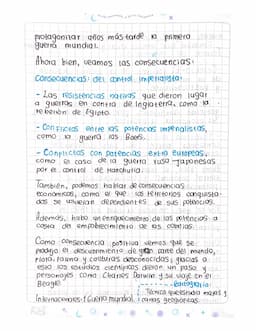 protagonizar años más tarde la primera
guerra mundial.
Ahora bien, veamos las consecuencias:
Consecuencias del control imperialista:
- Las resistencias nativas que dieron lugar
a guerras en contra de Inglaterra, como la
rebelión de Egipto.
- Conflictos entre las potencias imperialistas,
como la guerra los Boers.
- Conflictos con potencias extra europeas,
como el caso de la guerra ruso-japonesas
por el control de Manchuria.
También, podemos hablar de consecuencias
económicas, como el que los territorios conquista-
dos se volvieran dependientes de sus potencias.
Además, hubo un enriquecimiento de las potencias a
costa del empobrecimiento de las colonias.
Como consecuencia positiva vemos que se
produjo el descubrimiento de gran parte del mundo,
flora, fauna y culturas desconocidas, gracias a
esto los estudios científicos dieron un paso y
personajes como Charles Darwin y su viaje en el
Beagle
Cartografía
Técnica que estudia mapas y
Internaciones 1 Guerra mundial. cartas geográficas.